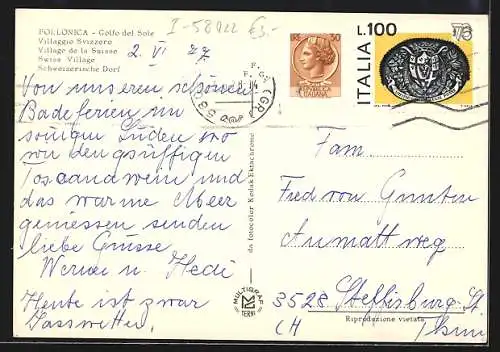 FOLLONICA - Golfo del Sole
Villaggio Svizzero
Village de la Suisse
Swiss Village
Schweizerische Dorf
I-58022 €3.-
2. VI 77
Von unseren schönen
Badeferien im
sonnigen Süden wo
wir den süffigen
Toscanawein und
das warme Meer
geniessen senden
liebe Grüsse
Werner u. Hedi
Heute ist zwar
Jasswetter.
50
ITALIANA
ITALIA
L.100
(GR)
58
da fotocolor Kodak Ektachrome
MULTIGRAF
TERNI
Fam.
Fred von Gunten
Aumattweg
3528 Steffisburg St.
CH Thun
Riproduzione vietata